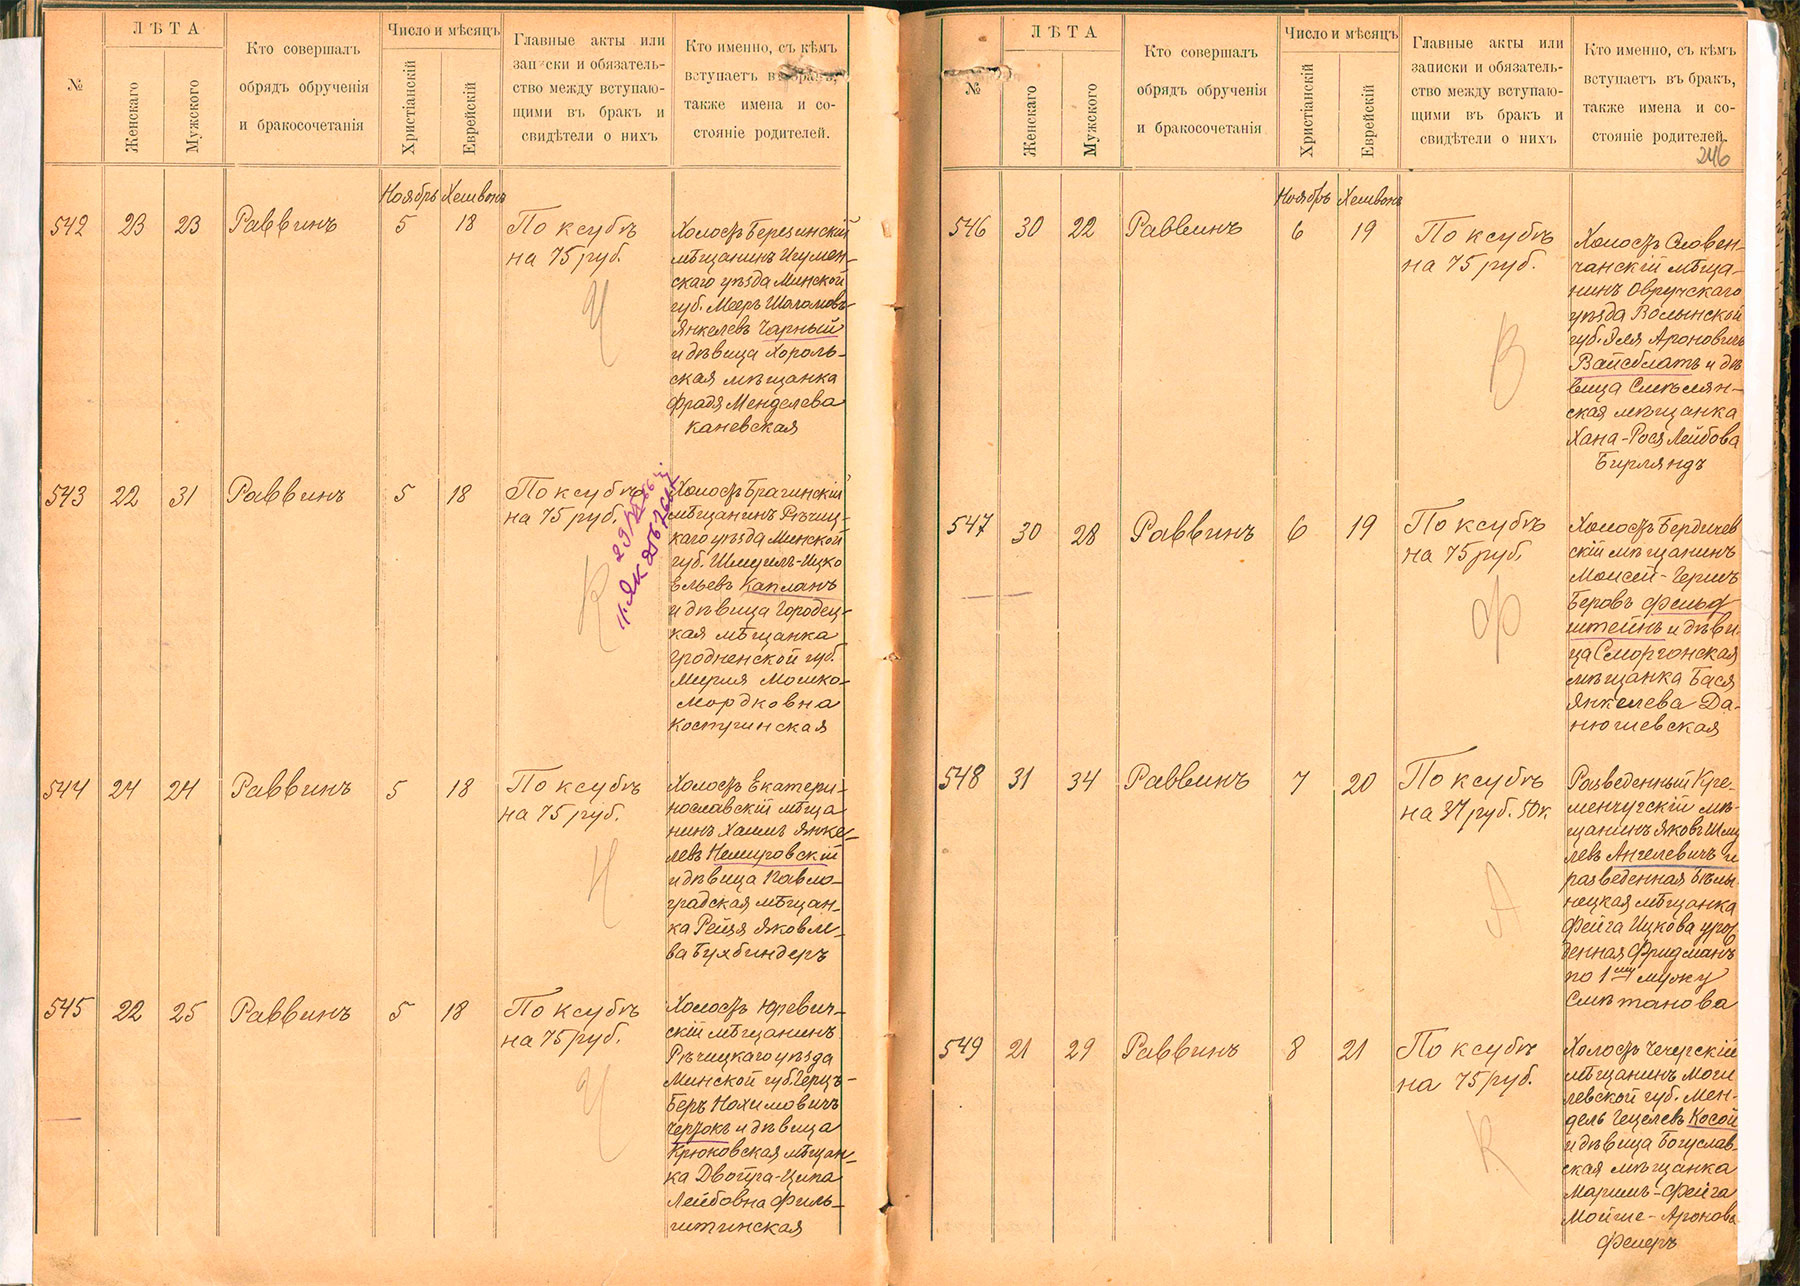 №
ЛѢТА
Женскаго
Мужского
Кто совершалъ
обрядъ обрученія
и бракосочетанія
Число и мѣсяцъ
Христіанскій
Еврейскій
Главные акты или
записки и обязатель-
ство между вступаю-
щими въ бракъ и
свидѣтели о нихъ
Кто именно, съ кѣмъ
вступаетъ въ бракъ,
также имена и со-
стояніе родителей.
Ноябрь Хешвонъ
542 23 23 Раввинъ 5 18
По ксубѣ
на 75 руб.
Ч
Холостъ Березинскій
мѣщанинъ Игумен-
скаго уѣзда Минской
губ. Мееръ Шоломовъ-
Янкелевъ Чарный
и дѣвица Хороль-
ская мѣщанка
Фрадя Менделева
Каневская
543 22 31 Раввинъ 5 18
По ксубѣ
на 75 руб.
К
Холостъ Брагинскій
мѣщанинъ Рѣчиц-
каго уѣзда Минской
губ. Шмуилъ-Ицко
Ельевъ Капланъ
и дѣвица Городец-
кая мѣщанка
Гродненской губ.
Мирля Мошко-
Мордковна
544 24 24 Раввинъ 5 18
По ксубѣ
на 75 руб.
Н
Холостъ Екатери-
нославскій мѣща
нинъ Хаимъ Янке-
левъ Немировскій
и дѣвица Павло-
градская мѣщан-
ка Рейзя Яковле-
ва Бухбиндеръ
545 22 25 Раввинъ 5 18
По ксубѣ
на 75 руб.
Ч
Холостъ Юревич-
скій мѣщанинъ
Рѣчицкаго уѣзда
Минской губ. Герцъ-
Беръ Нохимовичъ
Чертокъ и дѣвица
Крюковская мѣщан-
ка Двойра-Ципа
Лейбовна Филь-
штинская
№
ЛѢТА
Женскаго
Мужского
Кто совершалъ
обрядъ обрученія
и бракосочетанія
Число и мѣсяцъ
Христіанскій
Еврейскій
Главные акты или
записки и обязатель-
ство между вступаю-
щими въ бракъ и
свидѣтели о нихъ
Кто именно, съ кѣмъ
вступаетъ въ бракъ,
также имена и со-
стояніе родителей.
246
Ноябрь Хешвонъ
546 30 22 Раввинъ 6 19
По ксубѣ
на 75 руб.
В
Холостъ Словеч-
чанскій мѣща-
нинъ Овручскаго
уѣзда Волынской
губ. Эля Ароновичъ
Вайсблатъ и дѣ
вица Смѣлян-
ская мѣщанка
Хана-Рося Лейбова
Бирляндъ
547 30 28 Раввинъ 6 19
По ксубѣ
на 75 руб.
Ф
Холостъ Бердичев
скій мѣщанинъ
Моисей-Гершъ
Беровъ Фельд
штейнъ и дѣви
ца Сморгонская
мѣщанка Бася
Янкелева Да-
нюшевская
548 31 34 Раввинъ 7 20
По ксубѣ
на 37 руб. 50 к.
А
Разведенный Кре-
менчугскій мѣ-
щанинъ Яковъ Шму
левъ Ангелевичъ и
разведенная Бѣлы-
ницкая мѣщанка
Фейга Ицкова урож
денная Фридманъ
по 1му мужу
Смѣтанова
549 21 29 Раввинъ 8 21
По ксубѣ
на 75 руб.
К
Холостъ Чечерскій
мѣщанинъ Моги
левской губ. Мен-
дель Гецелевъ Косой
и дѣвица Богуслав-
ская мѣщанка
Маріимъ-Фейга
Мойше-Аронова